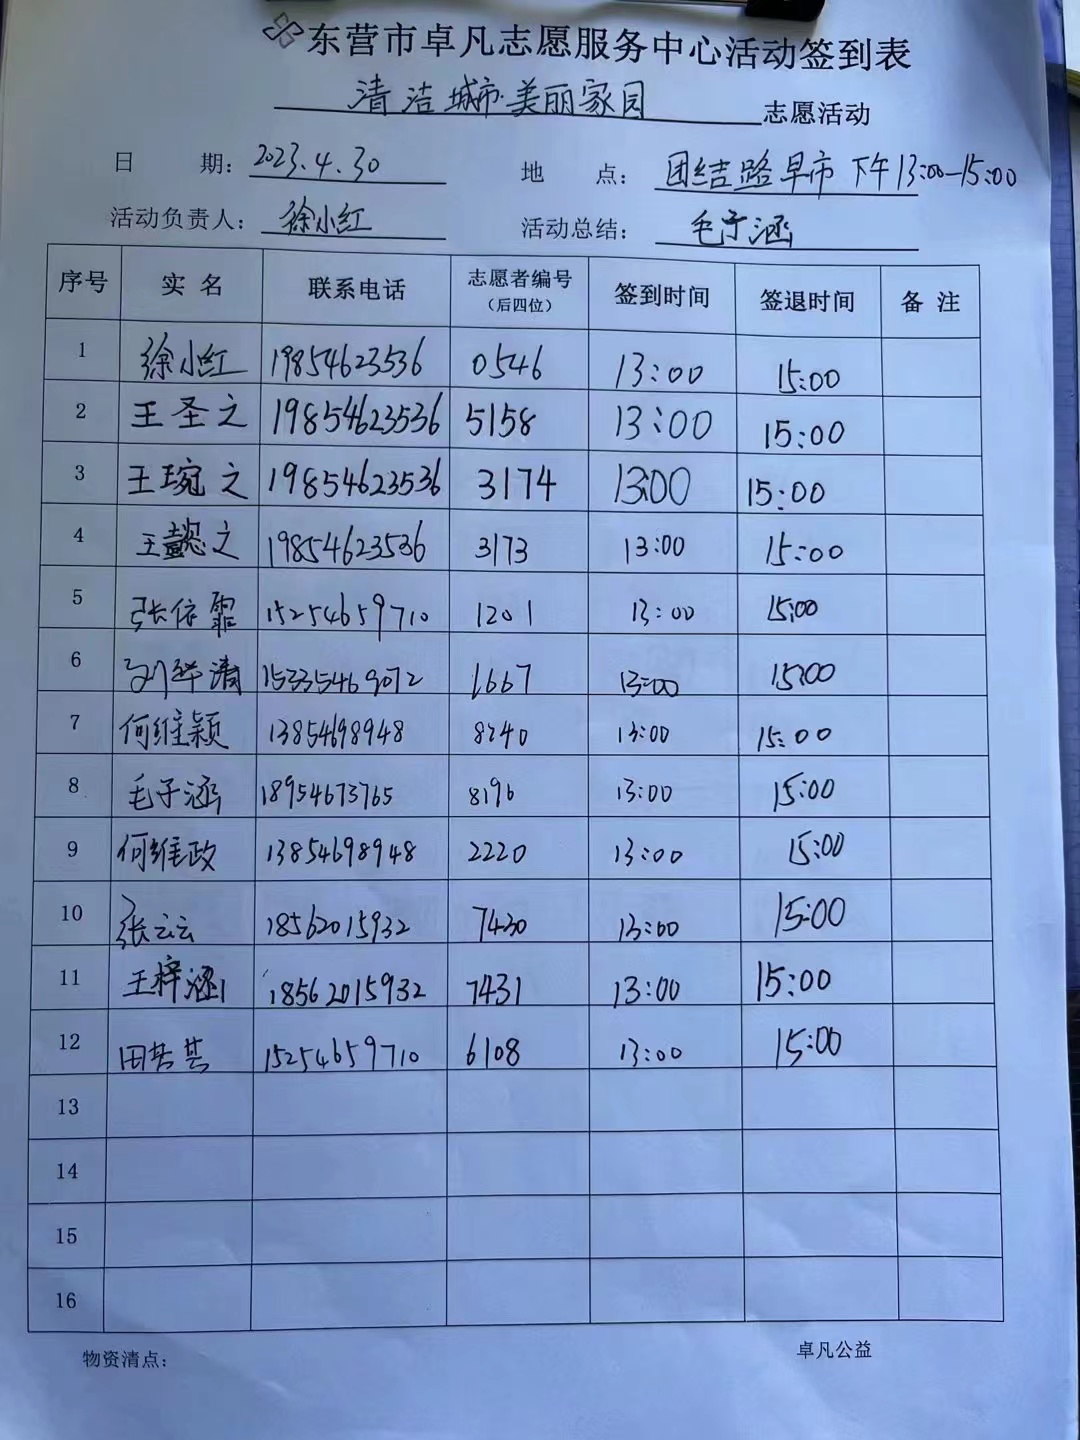 东营市卓凡志愿服务中心活动签到表
清洁城市·美丽家园 志愿活动
日 期: 2023.4.30 地 点: 团结路早市 下午13:00-15:00
活动负责人: 徐小红 活动总结: 毛子涵
序号 实 名 联系电话 志愿者编号(后四位) 签到时间 签退时间 备 注
1 徐小红 19854623536 0546 13:00 15:00
2 王圣之 19854623536 5158 13:00 15:00
3 王琬之 19854623536 3174 13:00 15:00
4 王懿之 19854623536 3173 13:00 15:00
5 张依霏 15254659710 1201 13:00 15:00
6 刘华清 15335469072 1667 13:00 15:00
7 何维颖 13854698948 8240 13:00 15:00
8 毛子涵 18954673765 8196 13:00 15:00
9 何维政 13854698948 2220 13:00 15:00
10 张云云 18562015932 7430 13:00 15:00
11 王梓涵 18562015932 7431 13:00 15:00
12 田 15254659710 6108 13:00 15:00
13
14
15
16
物资清点: 卓凡公益